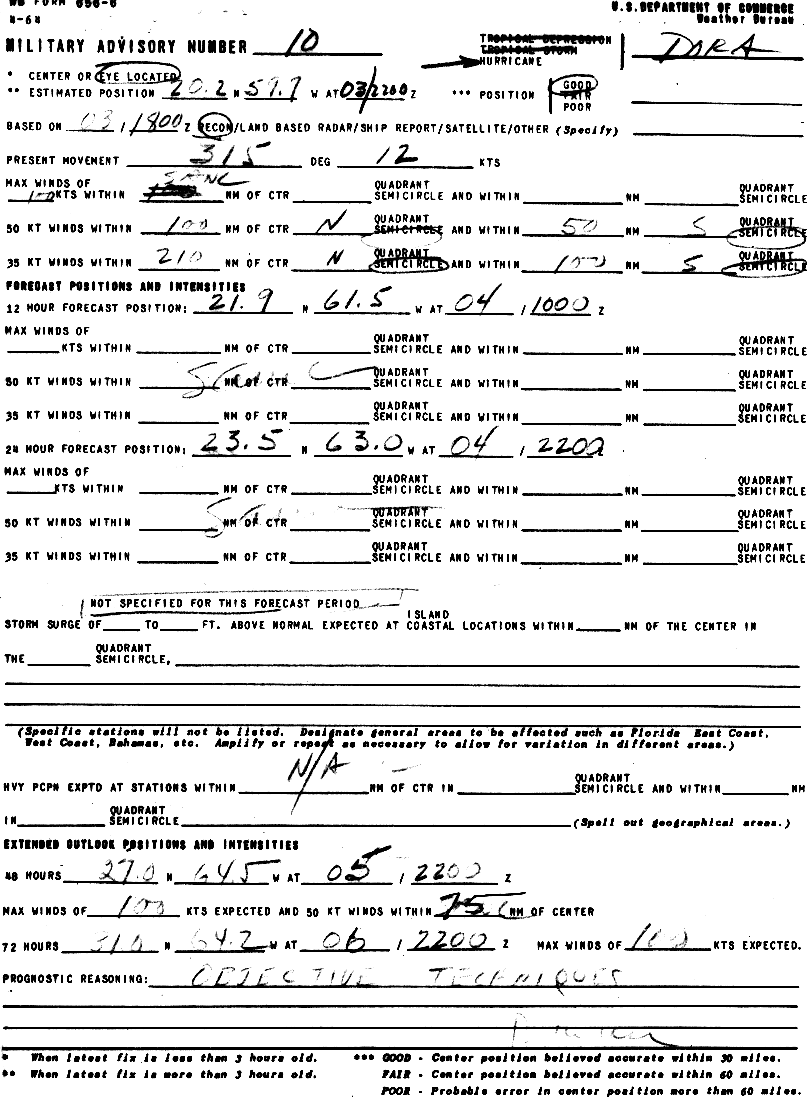 WB FORM 656-6 U.S. DEPARTMENT OF COMMERCE
8-64 Weather Bureau
MILITARY ADVISORY NUMBER 10 TROPICAL DEPRESSION
TROPICAL STORM
HURRICANE DORA
* CENTER OR EYE LOCATED
** ESTIMATED POSITION 20.2 N 59.7 W AT 03/2200 Z *** POSITION GOOD
FAIR
POOR
BASED ON 03/1800 Z RECON/LAND BASED RADAR/SHIP REPORT/SATELLITE/OTHER (Specify)
PRESENT MOVEMENT 315 DEG 12 KTS
MAX WINDS OF QUADRANT QUADRANT
100 KTS WITHIN NM OF CTR SEMICIRCLE AND WITHIN NM SEMICIRCLE
QUADRANT QUADRANT
50 KT WINDS WITHIN 100 NM OF CTR N SEMICIRCLE AND WITHIN 50 NM S SEMICIRCLE
QUADRANT QUADRANT
35 KT WINDS WITHIN 210 NM OF CTR N SEMICIRCLE AND WITHIN 100 NM S SEMICIRCLE
FORECAST POSITIONS AND INTENSITIES
12 HOUR FORECAST POSITION: 21.9 N 61.5 W AT 04 / 1000 Z
MAX WINDS OF QUADRANT QUADRANT
KTS WITHIN NM OF CTR SEMICIRCLE AND WITHIN NM SEMICIRCLE
QUADRANT QUADRANT
50 KT WINDS WITHIN NM OF CTR SEMICIRCLE AND WITHIN NM SEMICIRCLE
QUADRANT QUADRANT
35 KT WINDS WITHIN NM OF CTR SEMICIRCLE AND WITHIN NM SEMICIRCLE
24 HOUR FORECAST POSITION: 23.5 N 63.0 W AT 04 / 2200
MAX WINDS OF QUADRANT QUADRANT
KTS WITHIN NM OF CTR SEMICIRCLE AND WITHIN NM SEMICIRCLE
QUADRANT QUADRANT
50 KT WINDS WITHIN NM OF CTR SEMICIRCLE AND WITHIN NM SEMICIRCLE
QUADRANT QUADRANT
35 KT WINDS WITHIN NM OF CTR SEMICIRCLE AND WITHIN NM SEMICIRCLE
NOT SPECIFIED FOR THIS FORECAST PERIOD
ISLAND
STORM SURGE OF TO FT. ABOVE NORMAL EXPECTED AT COASTAL LOCATIONS WITHIN NM OF THE CENTER IN
QUADRANT
THE SEMICIRCLE,
(Specific stations will not be listed. Designate general areas to be affected such as Florida East Coast,
West Coast, Bahamas, etc. Amplify or repeat as necessary to allow for variation in different areas.)
N/A QUADRANT
HVY PCPN EXPTD AT STATIONS WITHIN NM OF CTR IN SEMICIRCLE AND WITHIN NM
QUADRANT
IN SEMICIRCLE (Spell out geographical areas.)
EXTENDED OUTLOOK POSITIONS AND INTENSITIES
48 HOURS 27.0 N 64.5 W AT 05 / 2200 Z
MAX WINDS OF 100 KTS EXPECTED AND 50 KT WINDS WITHIN NM OF CENTER
72 HOURS 31.0 N 64.2 W AT 06 / 2200 Z MAX WINDS OF 100 KTS EXPECTED.
PROGNOSTIC REASONING: OBJECTIVE TECHNIQUES
* When latest fix is less than 3 hours old. *** GOOD - Center position believed accurate within 30 miles.
** When latest fix is more than 3 hours old. FAIR - Center position believed accurate within 60 miles.
POOR - Probable error in center position more than 60 miles.